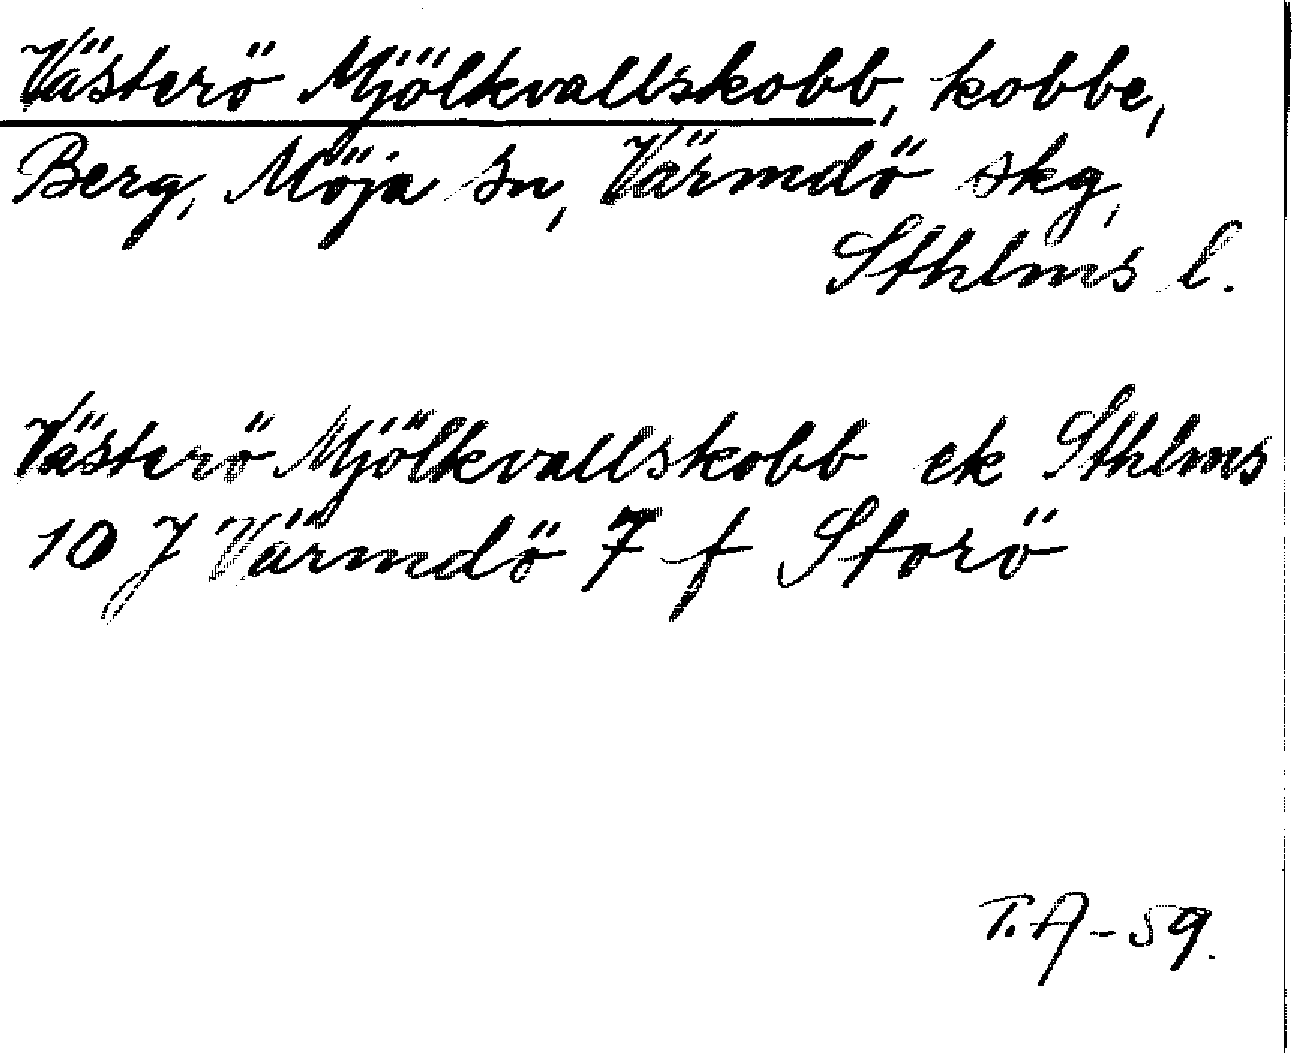 Västerö Mjölkvallskobb, kobbe,
Berg, Möja sn, Värmdö skg,
Sthlms l.
Västerö Mjölkvallskobb ek Sthlms
10 J Värmdö 7 f Storö
T.A-59.